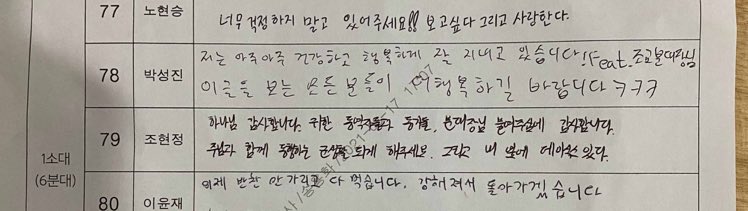 77 노현승 너무 걱정하지 말고 있어주세요!! 보고싶다 그리고 사랑한다.
78 박성진 저는 아주아주 건강하고 행복하게 잘 지내고 있습니다!(Feat.조교분대장님
이글을 보는 모든 분들이 더 행복하길 바랍니다 ㅋㅋㅋ
1소대
(6분대)
79 조현정 하나님 감사합니다. 귀한 동역자들과 동기들, 분대장님 붙여주심에 감사합니다.
주님과 함께 동행하는 군생활 되게 해주세요. 그리고 내 옆에 있다.
80 이윤재 이제 반찬 안가리고 다 먹습니다. 강해져서 돌아가겠습니다